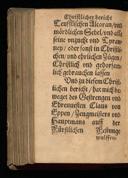 Christlicher bericht
Teufflischen Alcoran/ vnd
mördlichen Sebel/ vnd alle
seine vnzucht vnd Tyran-
ney/ oder sonst in Christli-
chen/ vnd ehrlichen Zügen/
Christlich vnd gehorsam-
lich gebrauchen lassen
Vnd zu diesem Christ-
lichen bericht/ hat mich be-
weget des Gestrengen vnd
Ehrenuesten Claus von
Eppen/ Zeugmeisters vnd
Hauptmans auff der
Fürstlichen Festunge
wulffen-